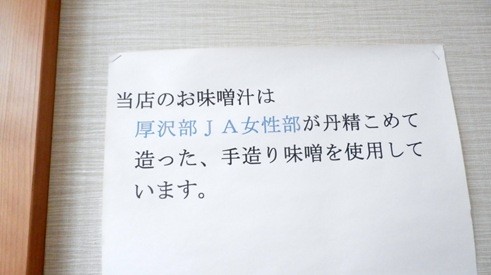 当店のお味噌汁は
厚沢部ＪＡ女性部が丹精こめて
造った、手造り味噌を使用して
います。